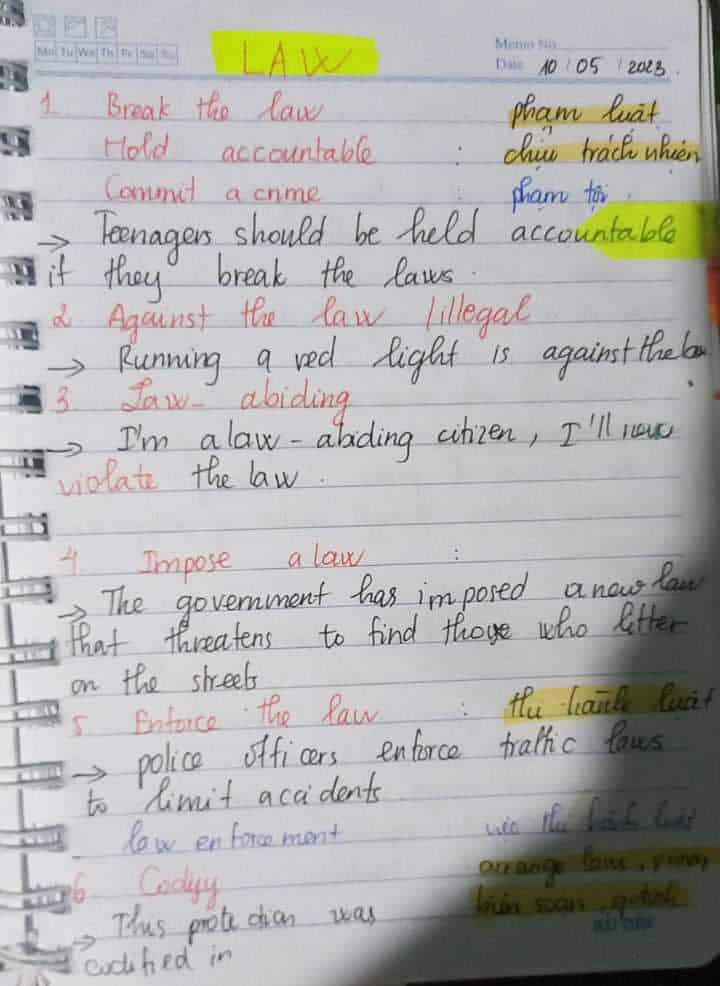 Mo Tu We Th Fr Sa Su
Memo No.
LAW
Date 10 / 05 / 2023.
1 Break the law phạm luật
Hold accountable : chịu trách nhiên
Commit a crime : phạm tội
→ Teenagers should be held accountable
if they break the laws.
2 Against the law / illegal
→ Running a red light is against the law
3 Law- abiding
→ I'm a law - abiding citizen, I'll
violate the law.
4 Impose a law :
→ The government has imposed a new law
that threatens to find those who litter
on the streets
5 Enforce the law : thu hành luật
→ police officers enforce traffic laws
to limit accidents
law enforcement luật
6 Codyy arrange laws,
→ This protection was biên soạn,
codified in